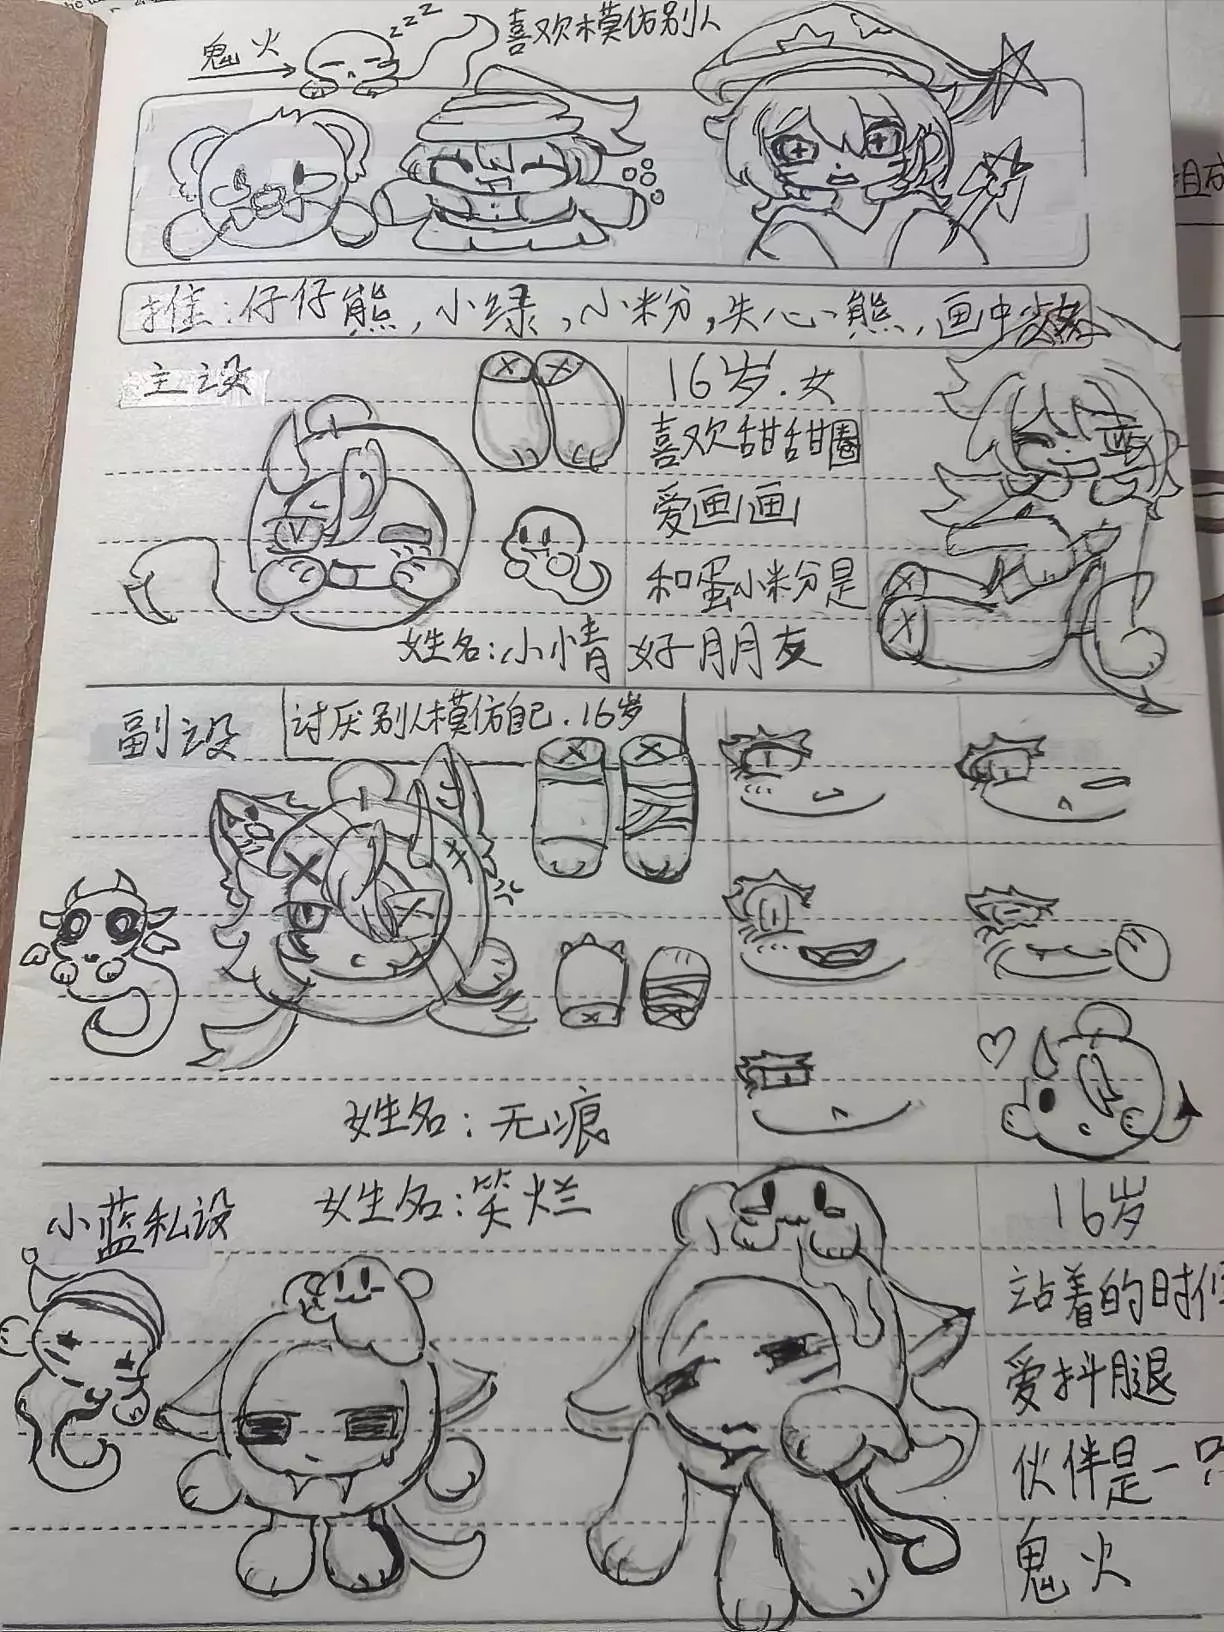 鬼火
zzz
喜欢模仿别人
推:仔仔熊,小绿,小粉,失心熊,画中
主设
16岁.女
喜欢甜甜圈
爱画画
和蛋小粉是
好朋友
姓名:小情
副设
讨厌别人模仿自己.16岁
姓名:无痕
小蓝私设
姓名:笑烂
16岁
站着的时候
爱抖腿
伙伴是一只
鬼火